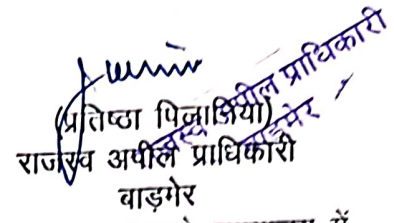 (प्रतिष्ठा पिलानियां)
राजस्व अपील प्राधिकारी
बाड़मेर
राजस्व अपील प्राधिकारी
बाड़मेर
में